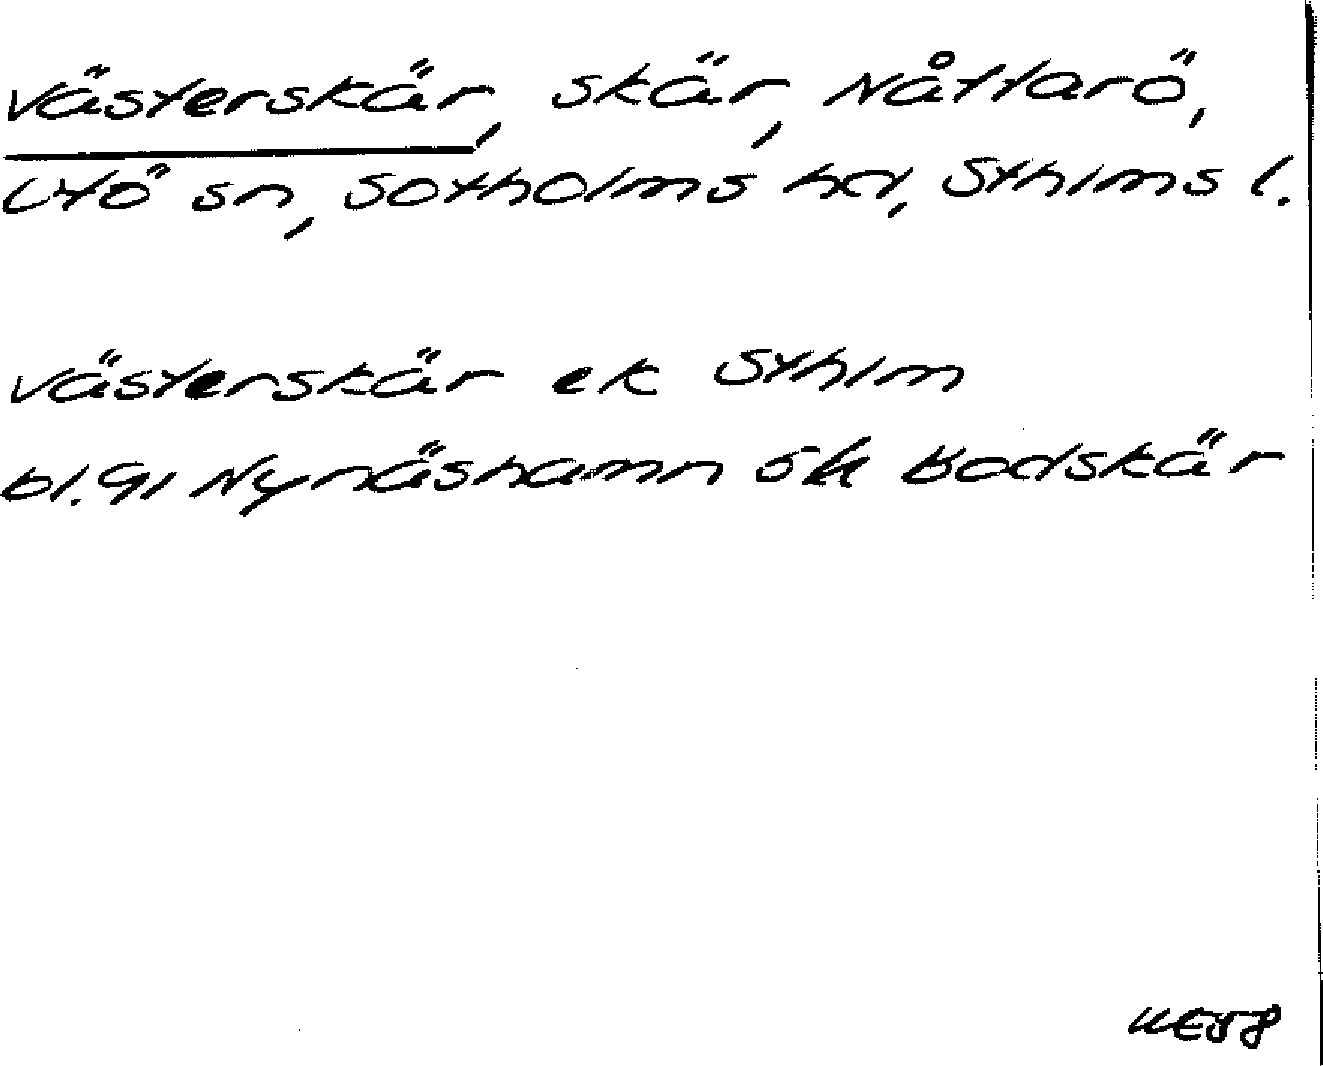 Västerskär, skär, Nåttarö,
Utö sn, Sotholms hd, Sthlms l.
Västerskär ek Sthlm
bl. 91 Nynäshamn sk Bodskär